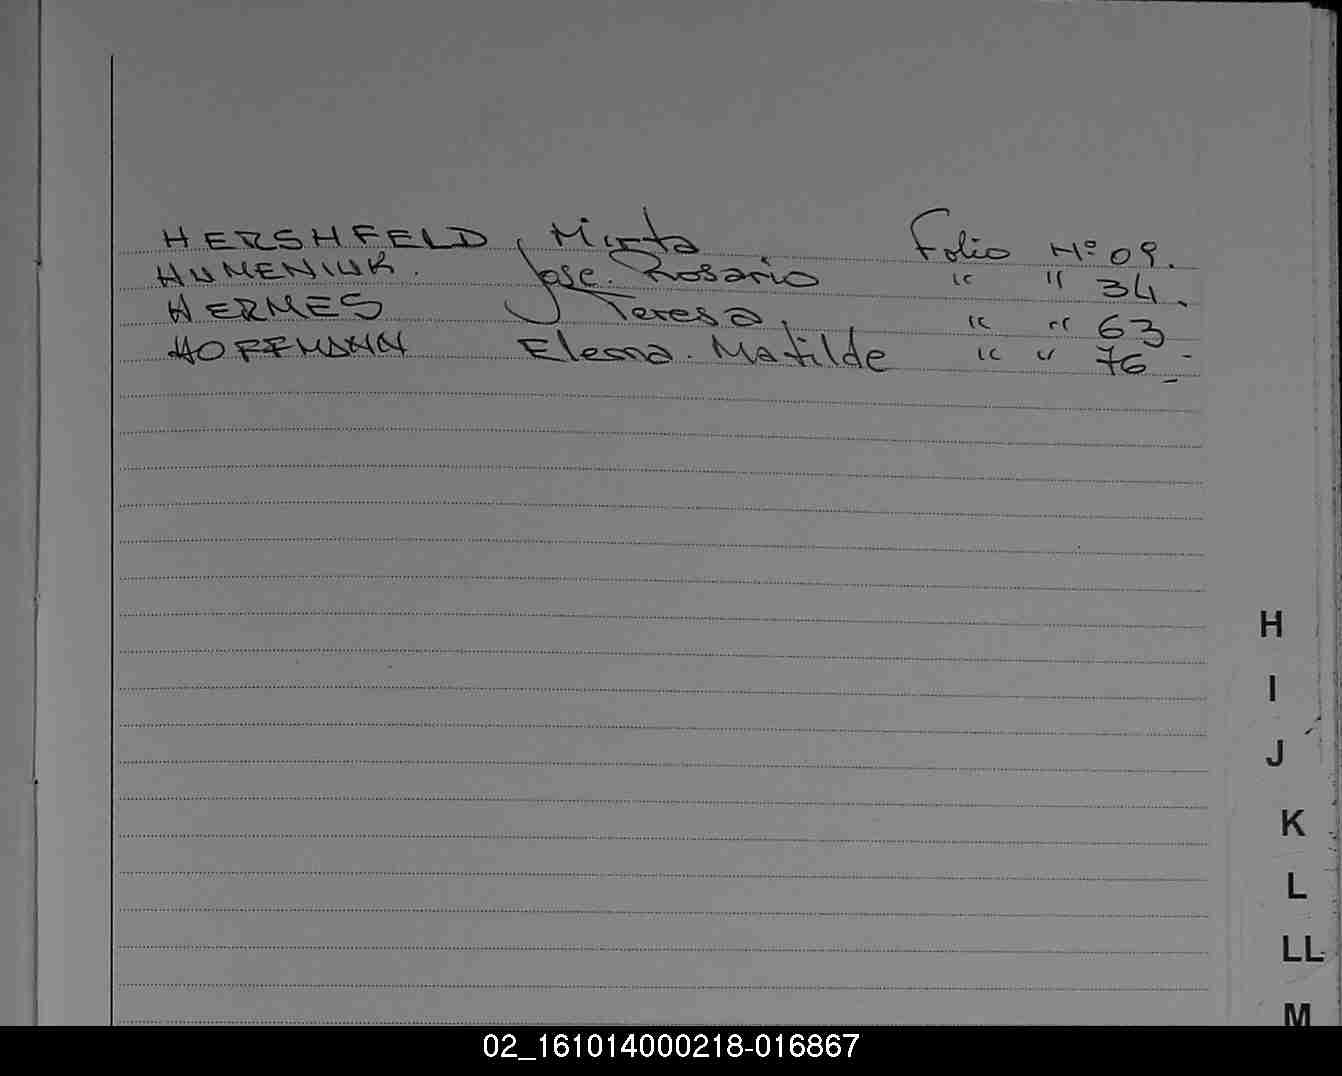 HERSHFELD, Mirta Folio Nº 09.
HUMENIUK. Jose. Rosario " " 34.
HERMES Teresa. " " 63
HOFFMANN Elena. Matilde " " 76.-
H
I
J
K
L
LL
M
02_161014000218-016867